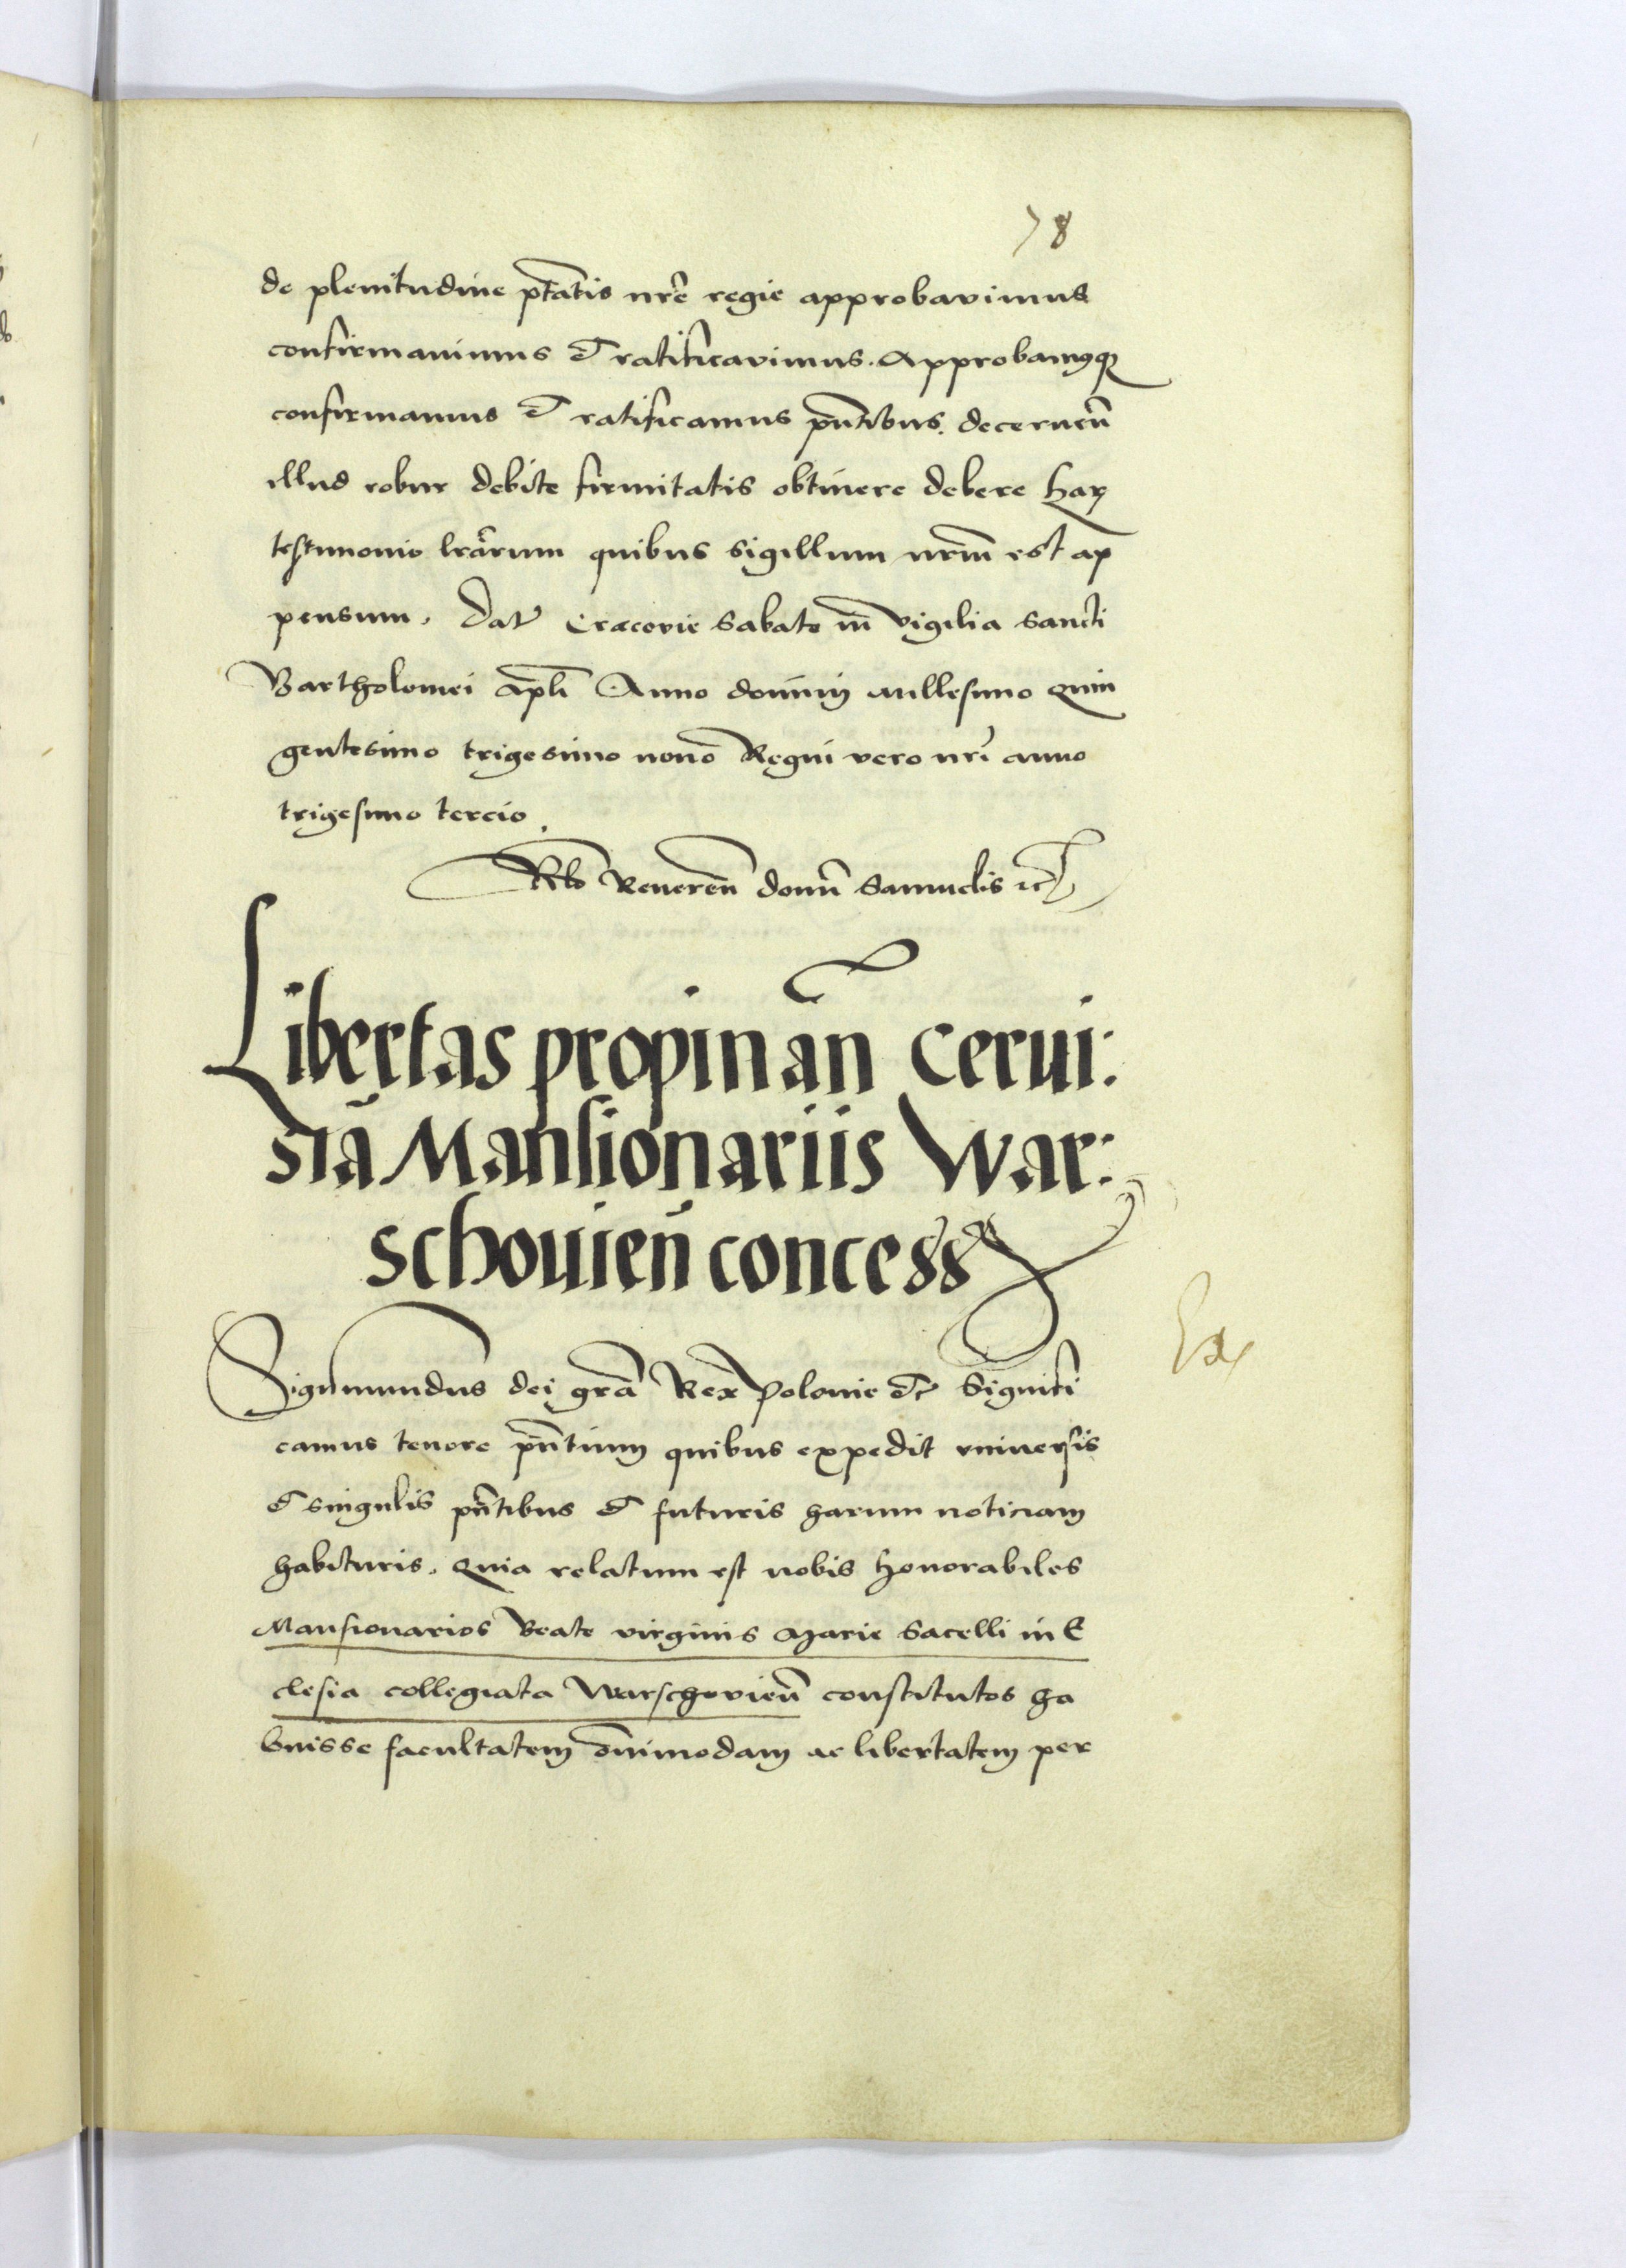 78
de plenitudine ptatis nre regie approbavimus
confirmavimus et ratificavimus. Approbamusque
confirmamus et ratificamus pntibus. decernen
illud robur debite firmitatis obtinere debere Har
testimonio lrarum quibus sigillum nrm est ap
pensum. Dat Cracovie Sabato in vigilia Sancti
Bartholomei apli Anno domini millesimo Quin
gentesimo trigesimo nono Regni vero nri anno
trigesimo tercio.
Rlo Reveren domn Samuelis etc
Libertas propinan Cerui:
siã Mansionariis War:
schouien concess
Sigismundus dei gra Rex Polonie etc Signifi
camus tenore pntium quibus expedit vniversis
et singulis pntibus et futuris harum noticiam
habituris. Quia relatum est nobis Honorabiles
Mansionarios Beate virginis Marie Sacelli in E
clesia collegiata Warschovien constitutos ha
buisse facultatem omnimodam ac libertatem per